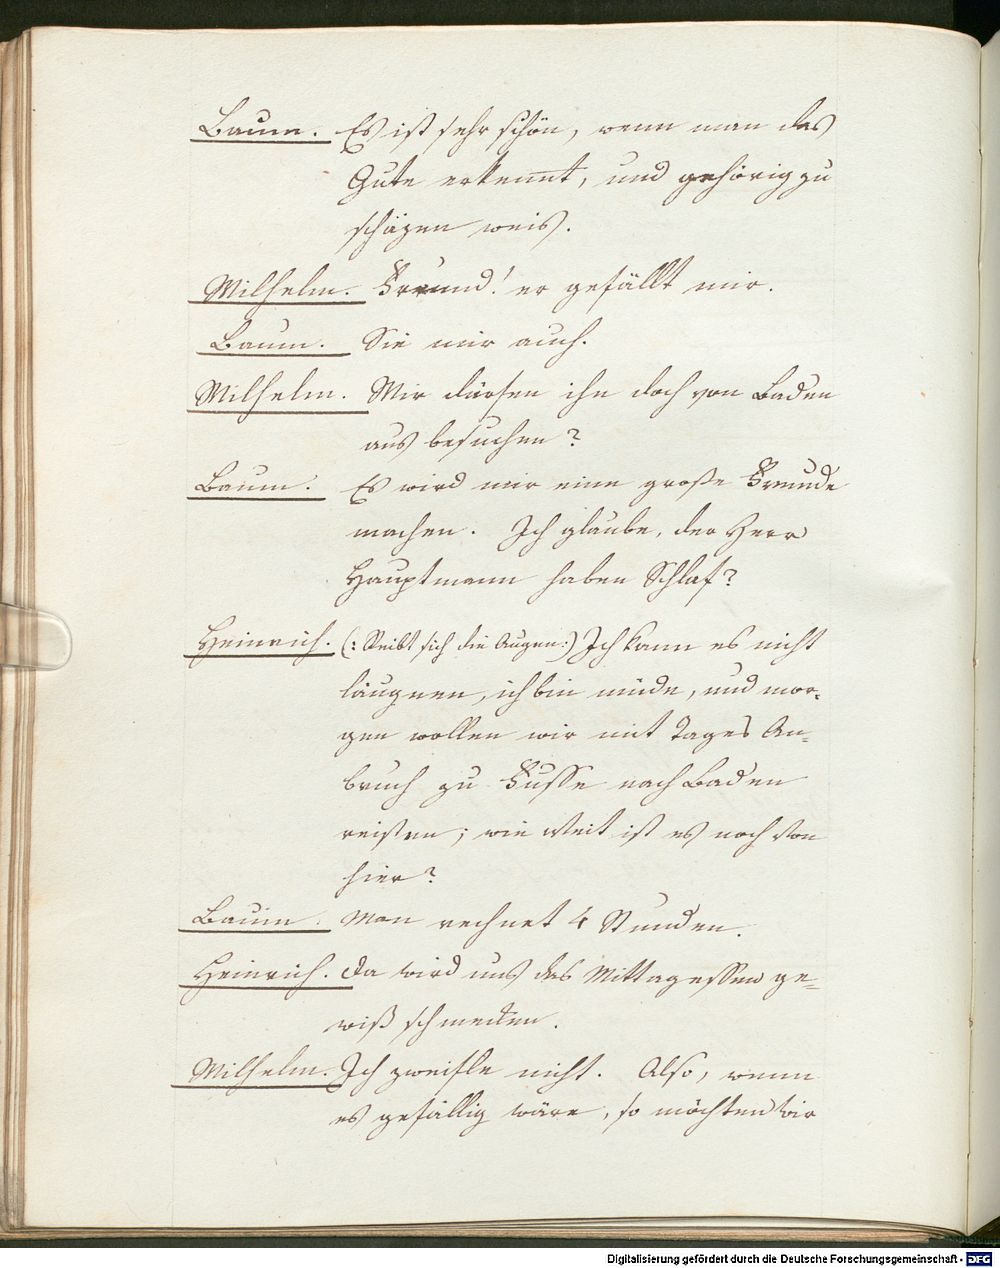 Baum. Es ist sehr schön, wenn man das
Gute erkennt, und gehörig zu
schäzen weis.
Wilhelm. Freund! er gefällt mir.
Baum. Sie mir auch.
Wilhelm. Wir dürfen ihn doch von Baden
aus besuchen?
Baum. Es wird mir eine große Freude
machen. Ich glaube, der Herr
Hauptmann haben Schlaf?
Heinrich. (: Reibt sich die Augen :) Ich kann es nicht
läugnen, ich bin müde, und mor-
gen wollen wir mit Tages An=
bruch zu Fusse nach Baden
reisen; wie weit ist es noch von
hier?
Baum. Man rechnet 4 Stunden.
Heinrich. Da wird uns das Mittagessen ge=
wiß schmecken.
Wilhelm. Ich zweifle nicht. Also, wenn
es gefällig wäre, so möchten wir
Digitalisierung gefördert durch die Deutsche Forschungsgemeinschaft - DFG